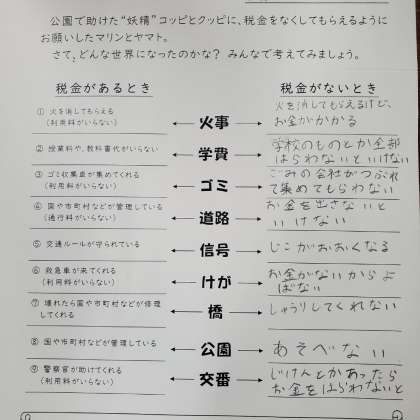 公園で助けた“妖精”コッピとクッピに、税金をなくしてもらえるように
お願いしたマリンとヤマト。
さて、どんな世界になったのかな？ みんなで考えてみましょう。
税金があるとき
税金がないとき
① 火を消してもらえる
（利用料がいらない）
火事
火を消してもらえるけど、
お金がかかる
② 授業料や、教科書代がいらない
学費
学校のものとか全部
はらわないといけない
③ ゴミ収集車が集めてくれる
（利用料がいらない）
ゴミ
ごみの会社がつぶれ
て集めてもらわない
④ 国や市町村などが管理している
（通行料がいらない）
道路
お金を出さないと
いけない
⑤ 交通ルールが守られている
信号
じこがおおくなる
⑥ 救急車が来てくれる
（利用料がいらない）
けが
お金がないからよ
ばない
⑦ 壊れたら国や市町村などが修理
してくれる
橋
しゅうりしてくれない
⑧ 国や市町村などが管理している
公園
あそべない
⑨ 警察官が助けてくれる
（利用料がいらない）
交番
じけんとかあったら
お金をはらわないと